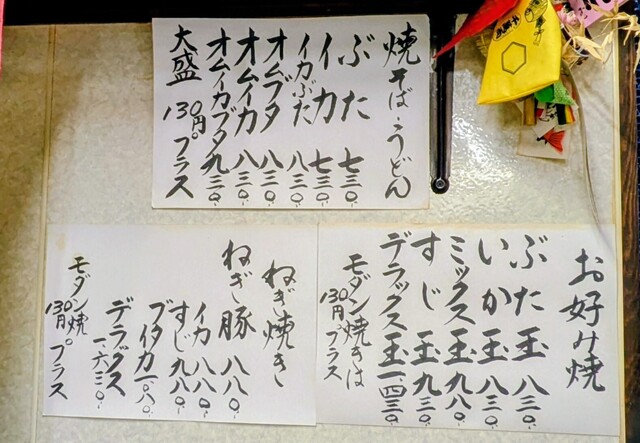 焼そば・うどん
ぶた 七三〇
イカ 七三〇
イカぶた 八三〇
オムブタ 八三〇
オムイカ 八三〇
オムイカブタ 九三〇
大盛 130円。プラス
お好み焼
ぶた玉 八三〇
いか玉 八三〇
ミックス玉 九八〇
すじ玉 九三〇
デラックス玉 一、四三〇
モダン焼きは
130円プラス
ねぎ焼き
ねぎ豚 八八〇
イカ 八八〇
すじ 九八〇
ブタイカ 一、〇八〇
デラックス 一、六三〇
モダン焼
130円。プラス